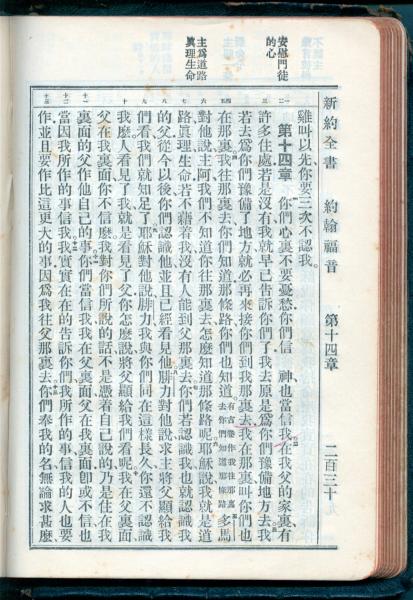 新約全書 約翰福音 第十四章 二百三十
安慰門徒
的心
主爲道路
眞理生命
雞叫以先你要三次不認我。
第十四章 你們心裏不要憂愁你們信 神也當信我在我父的家裏有
許多住處若是沒有我就早已告訴你們了我去原是爲你們豫備地方去我
若去爲你們豫備了地方就必再來接你們到我那裏去我在那裏叫你們也
在那裏我往那裏去你們知道那條路你們也知道 有古卷作我往那裏去你們知道那條路 多馬
對他說主阿我們不知道你往那裏去怎麼知道那條路呢耶穌說我就是道
路眞理生命若不藉着我沒有人能到父那裏去你們若認識我也就認識我
的父從今以後你們認識他並且已經看見他腓力對他說求主將父顯給我
們看我們就知足了耶穌對他說腓力我與你們同在這樣長久你還不認識
我麼人看見了我就是看見了父你怎麼說將父顯給我們看呢我在父裏面
父在我裏面你不信麼我對你們所說的話不是憑着自己說的乃是住在我
裏面的父作他自己的事你們當信我我在父裏面父在我裏面卽或不信也
當因我所作的事信我我實實在在的告訴你們我所作的事信我的人也要
作並且要作比這更大的事因爲我往父那裏去你們奉我的名無論求甚麼